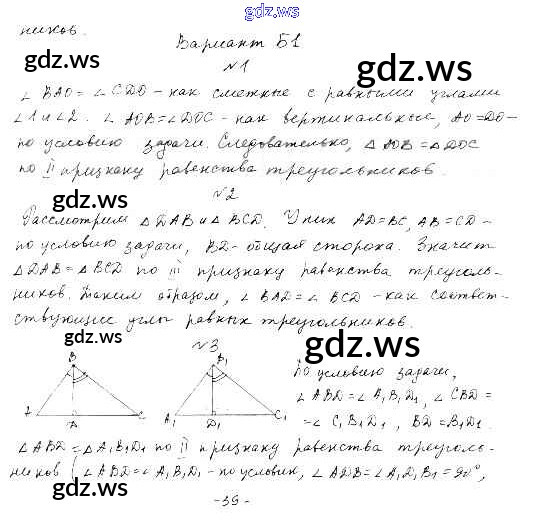 gdz.ws
ников.
Вариант Б1
gdz.ws
gdz.ws
№1
∠ BAO = ∠ CDO - как смежные с равными углами
∠1 и ∠2. ∠ AOB = ∠DOC - как вертикальные, AO = DO -
по условию задачи. Следовательно, △ AOB = △DOC
по II признаку равенства треугольников.
gdz.ws
gdz.ws
№2
Рассмотрим △ DAB и △ BCD. У них AD = BC, AB = CD -
по условию задачи, BD - общая сторона. Значит
△ DAB = △ BCD по III признаку равенства треуголь-
ников. Таким образом, ∠ BAD = ∠ BCD - как соответ-
ствующие углы равных треугольников.
gdz.ws
gdz.ws
№3
B
B₁
A
D
C
A₁
D₁
C₁
По условию задачи,
∠ ABD = ∠ A₁B₁D₁, ∠ CBD =
= ∠ C₁B₁D₁, BD = B₁D₁.
△ ABD = △ A₁B₁D₁ по II признаку равенства треуголь-
ников (∠ ABD = ∠ A₁B₁D₁ - по условию, ∠ ADB = ∠ A₁D₁B₁ = 90°,
gdz.ws
gdz.ws
- 39 -